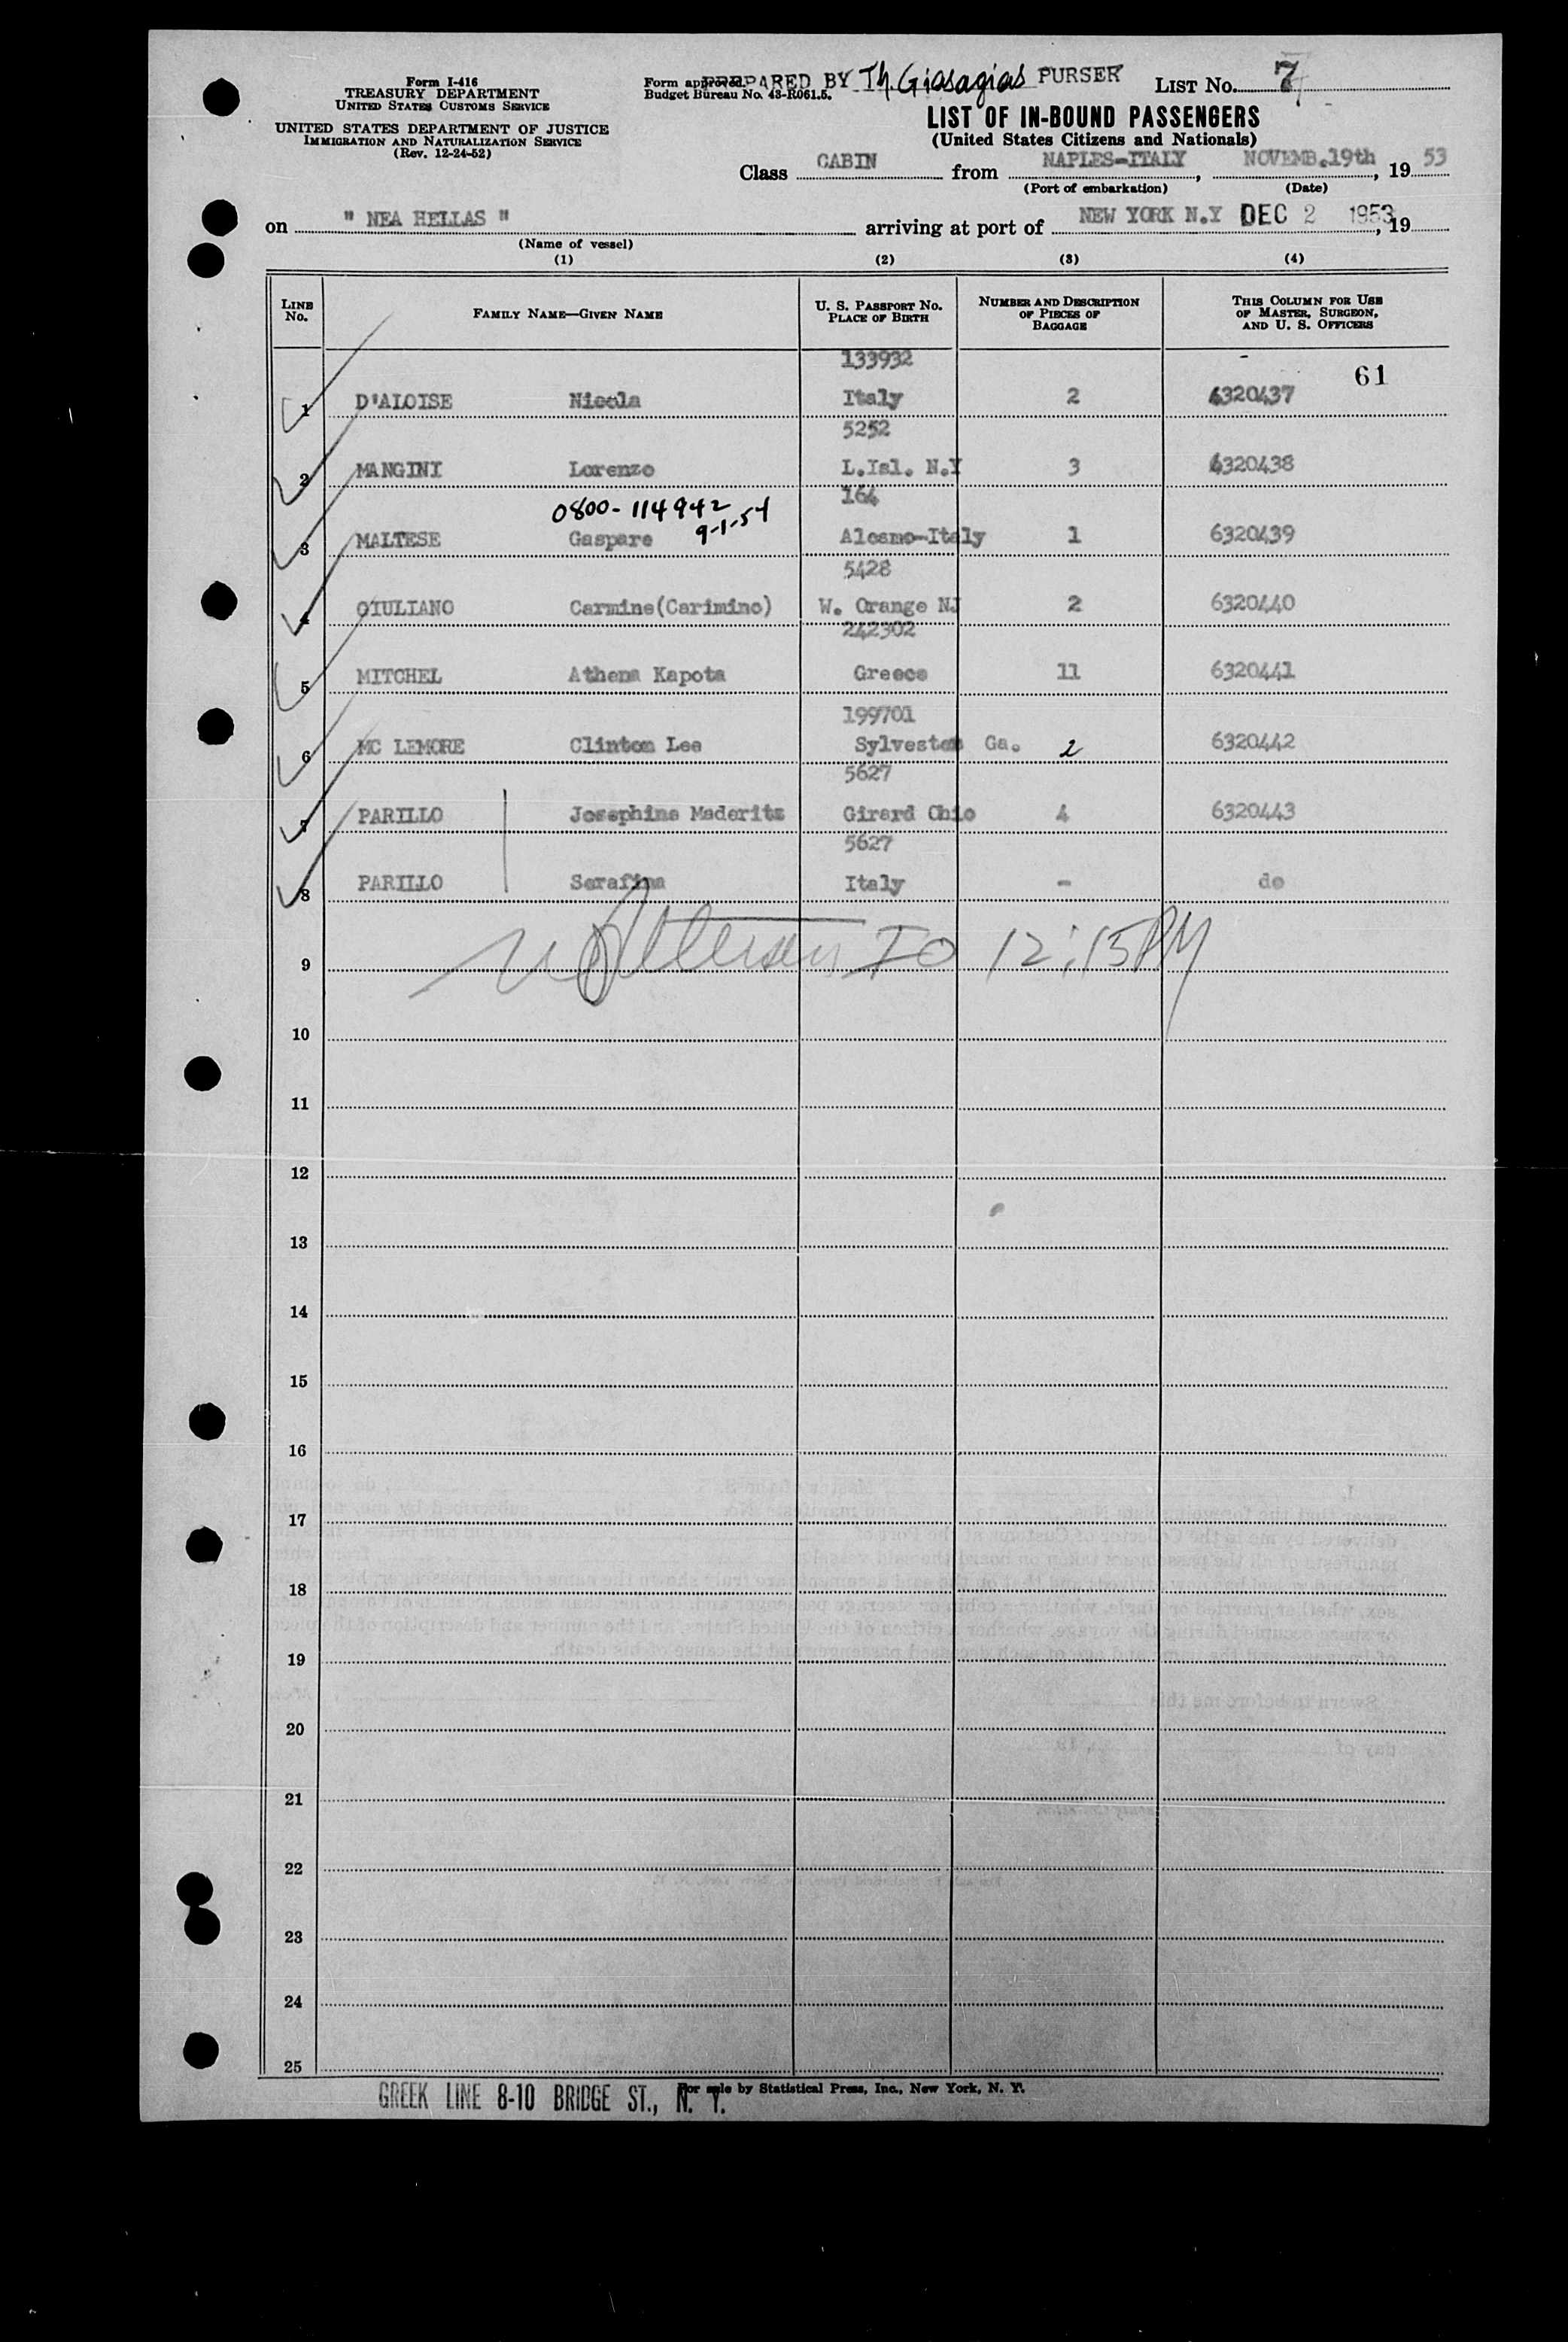 Form I-416
TREASURY DEPARTMENT
UNITED STATES CUSTOMS SERVICE
UNITED STATES DEPARTMENT OF JUSTICE
IMMIGRATION AND NATURALIZATION SERVICE
(Rev. 12-24-52)
Form approved.
Budget Bureau No. 43-R061.5.
PREPARED BY Th. Giasagias PURSER
LIST NO. 7
LIST OF IN-BOUND PASSENGERS
(United States Citizens and Nationals)
Class CABIN from NAPLES-ITALY, NOVEMB.19th, 19 53
(Port of embarkation) (Date)
on " NEA HELLAS " arriving at port of NEW YORK N.Y DEC 2 1953, 19
(Name of vessel)
(1) (2) (3) (4)
LINE NO. FAMILY NAME—GIVEN NAME U. S. PASSPORT NO. PLACE OF BIRTH NUMBER AND DESCRIPTION OF PIECES OF BAGGAGE THIS COLUMN FOR USE OF MASTER, SURGEON, AND U. S. OFFICERS
133932
61
1 D'ALOISE Nicola Italy 2 6320437
5252
2 MANGINI Lorenzo L.Isl. N.Y 3 6320438
164
0800-114942
9-1-54
3 MALTESE Gaspare Alcamo-Italy 1 6320439
5428
4 GIULIANO Carmine(Carimino) W. Orange NJ 2 6320440
242302
5 MITCHEL Athena Kapota Greece 11 6320441
199701
6 MC LEMORE Clinton Lee Sylvester Ga. 2 6320442
5627
7 PARILLO Josephine Maderitz Girard Ohio 4 6320443
5627
8 PARILLO Serafina Italy - do
IO 12:15PM
9
10
11
12
13
14
15
16
17
18
19
20
21
22
23
24
25
For sale by Statistical Press, Inc., New York, N. Y.
GREEK LINE 8-10 BRIDGE ST., N. Y.